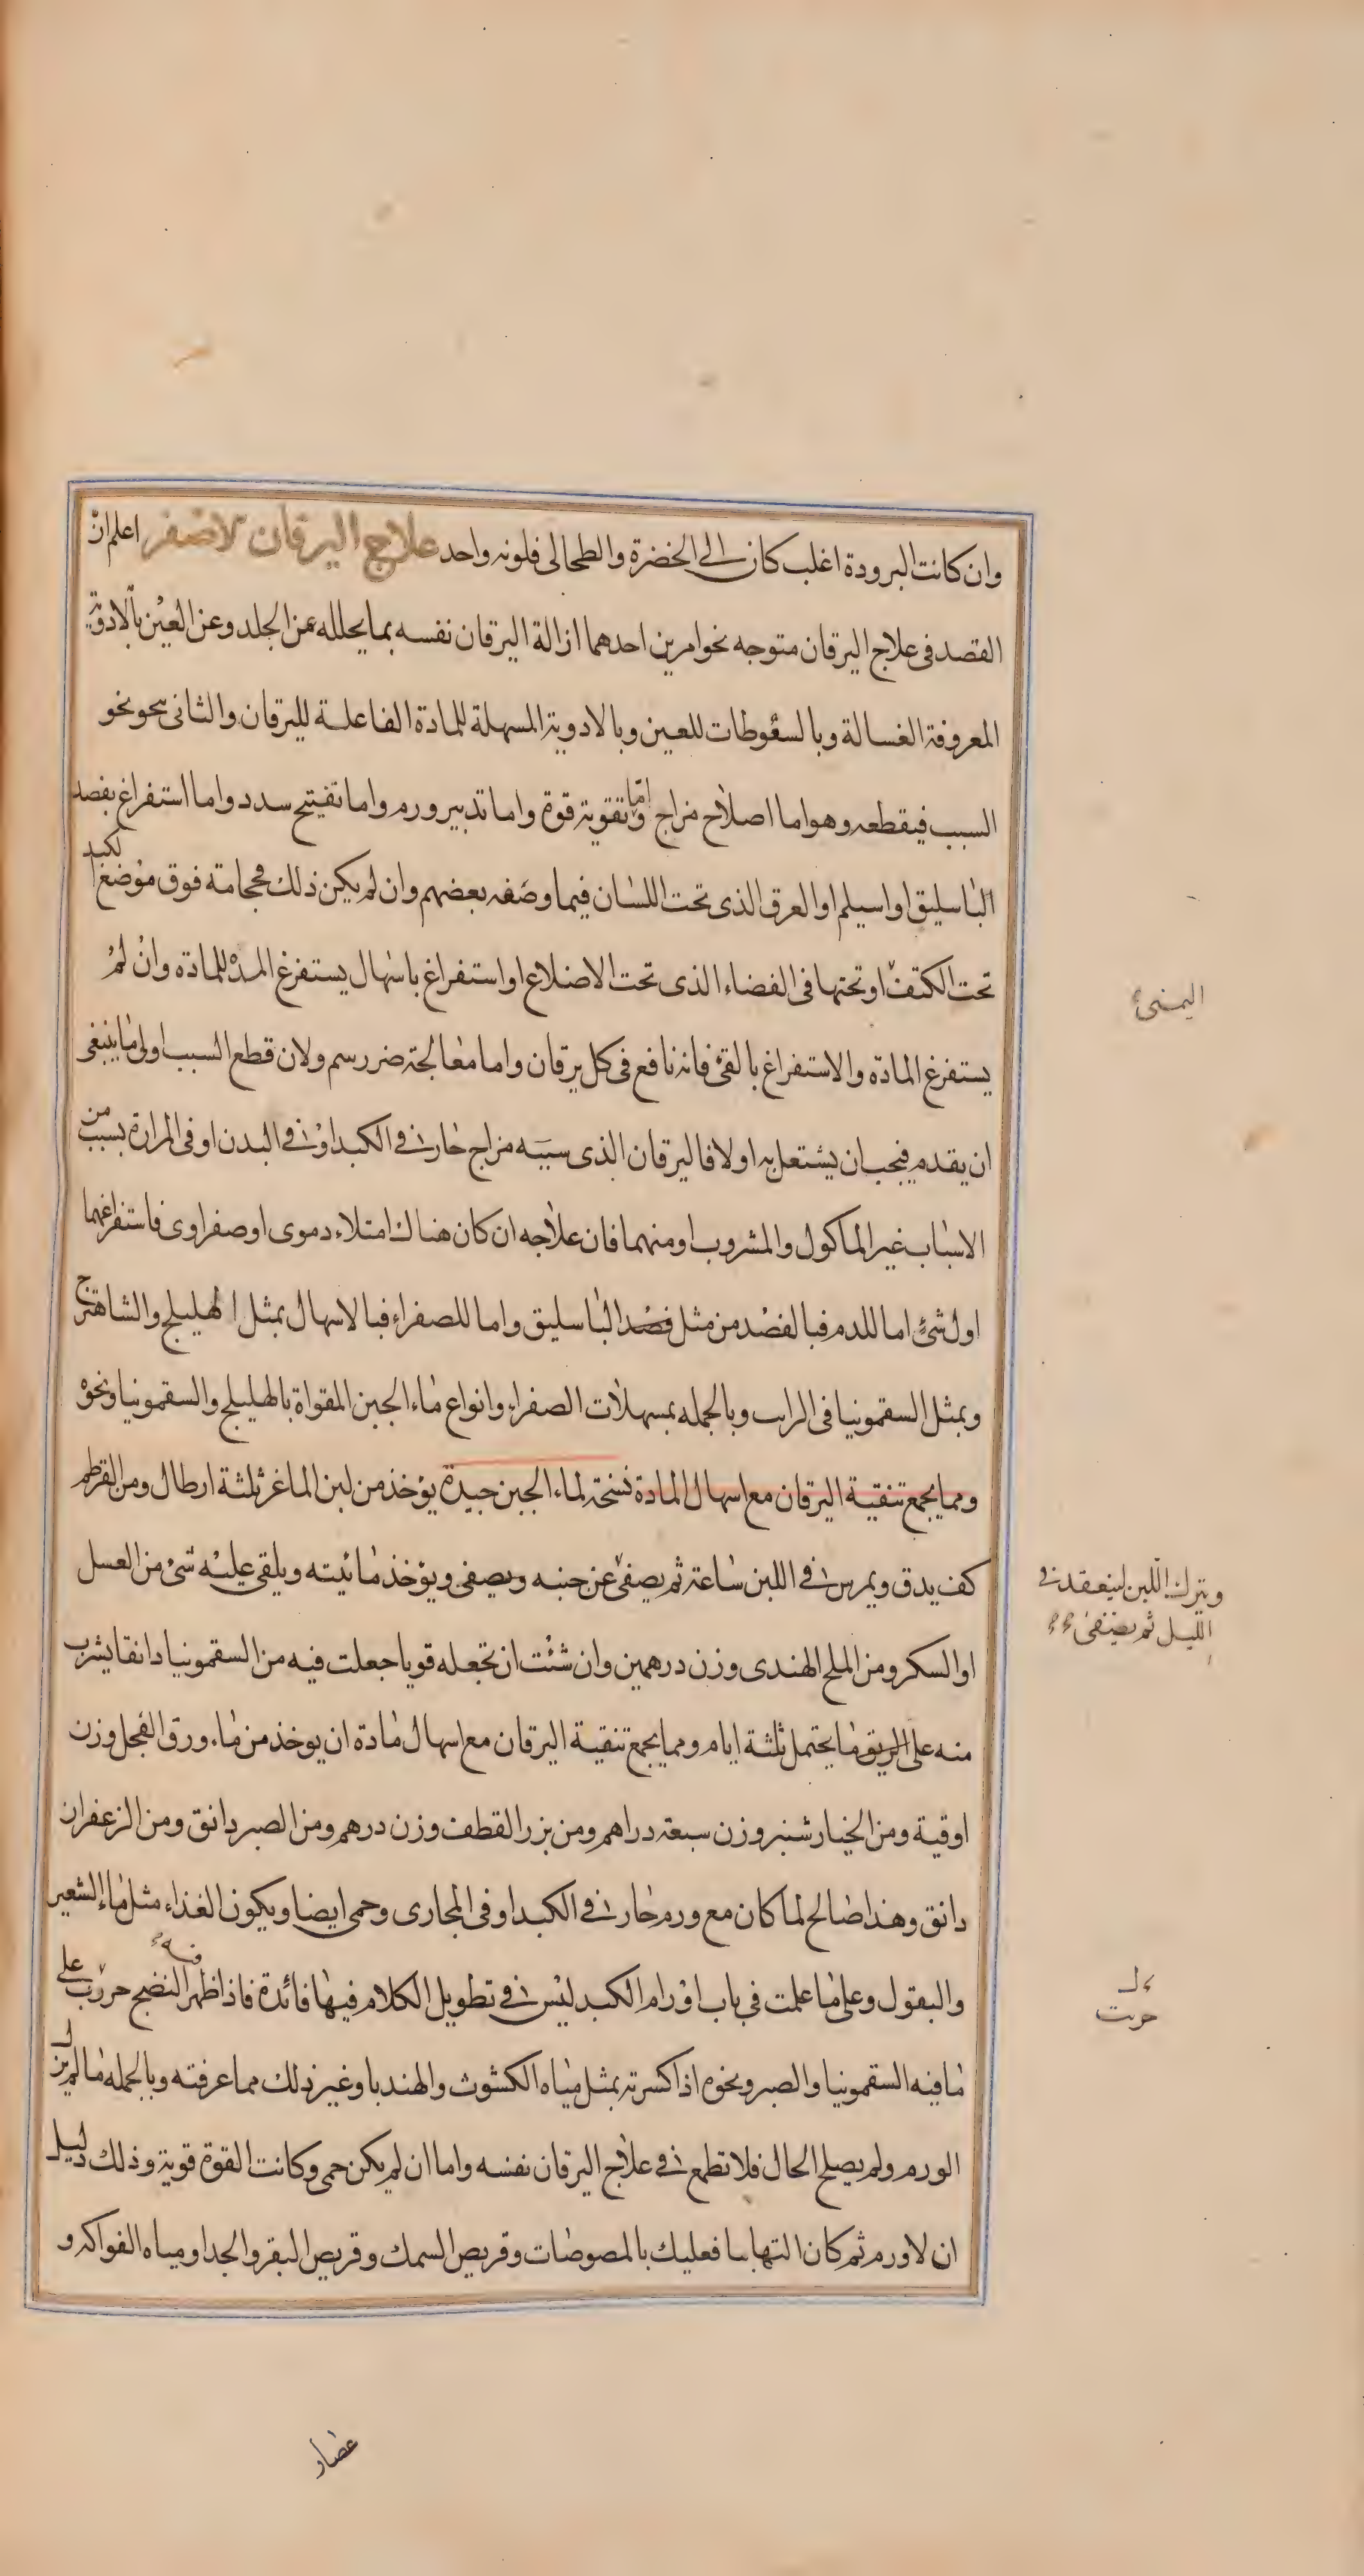 وان كانت البرودة اغلب كان الى الخضرة والطحالى فلونه واحد علاج اليرقان الاصفر اعلم ان
القصد فى علاج اليرقان متوجه نحو امرين احدهما ازالة اليرقان نفسه بما يحلله عن الجلد وعن العين بالادوية
المعروفة الغسالة وبالسعوطات للعين وبالادوية المسهلة للمادة الفاعلة لليرقان والثانى نحو نحو
السبب فيقطعه وهو اما اصلاح مزاج واما تقوية قوة واما تدبير ورم واما تفتيح سدد واما استفراغ بفصد
الباسليق او اسيلم او العرق الذى تحت اللسان فيما وصفه بعضهم وان لم يكن ذلك فحجامة فوق موضع الكبد
تحت الكتف او تحتها فى الفضاء الذى تحت الاضلاع او استفراغ باسهال يستفرغ المدة للمادة وان لم
اليمنى
يستفرغ المادة والاستفراغ بالقئ فانه نافع فى كل يرقان واما معالجة ضرر سم ولان قطع السبب اولى ما ينبغى
ان يقدم فيجب ان يشتغل به اولا فاليرقان الذى سببه مزاج حار فى الكبد او فى البدن او فى المرارة بسبب من
الاسباب غير الماكول والمشروب او منهما فان علاجه ان كان هناك امتلاء دموى او صفراوى فاستفراغهما
اول شئ اما للدم فبالفصد من مثل فصد الباسليق واما للصفراء فبالاسهال بمثل الهليلج والشاهترج
وبمثل السقمونيا فى الراىب وبالجمله بمسهلات الصفراء وانواع ماء الجبن المقواة بالهليلج والسقمونيا ونحوه
ومما يجمع تنقية اليرقان مع اسهال المادة نسخة لماء الجبن جيدة يؤخذ من لبن الماعز ثلثة ارطال ومن القرطم
كف يدق ويمرس فى اللبن ساعة ثم يصفى عن جبنه ويصفى ويؤخذ مائيته ويلقى عليه شئ من العسل
ويترك اللبن لينعقد فى
الليل ثم يصفى
او السكر ومن الملح الهندى وزن درهمين وان شئت ان تجعله قويا جعلت فيه من السقمونيا دانقا يشرب
منه على الريق ما يحتمل ثلثة ايام ومما يجمع تنقية اليرقان مع اسهال مادة ان يوخذ من ماء ورق الفجل وزن
اوقية ومن الخيارشنبر وزن سبعة دراهم ومن بزر القطف وزن درهم ومن الصبر دانق ومن الزعفران
دانق وهذا صالح لما كان مع ورم حار فى الكبد او فى المجارى وحمى ايضا ويكون الغذاء مثل ماء الشعير
والبقول وعلى ما علمت فى باب اورام الكبد ليس فى تطويل الكلام فيها فائدة فاذا ظهر النضج فيه حررت على
ما فيه السقمونيا والصبر ونحوه اذا كسرته بمثل مياه الكشوث والهندبا وغير ذلك مما عرفته وبالجمله ما لم يزل
الورم ولم يصلح الحال فلا تطمع فى علاج اليرقان نفسه واما ان لم يكن حمى وكانت القوة قوية وذلك دليل
ان لا ورم ثم كان التهابا فعليك بالمصوصات وقريص السمك وقريص البقر والجدا ومياه الفواكه و
عصار